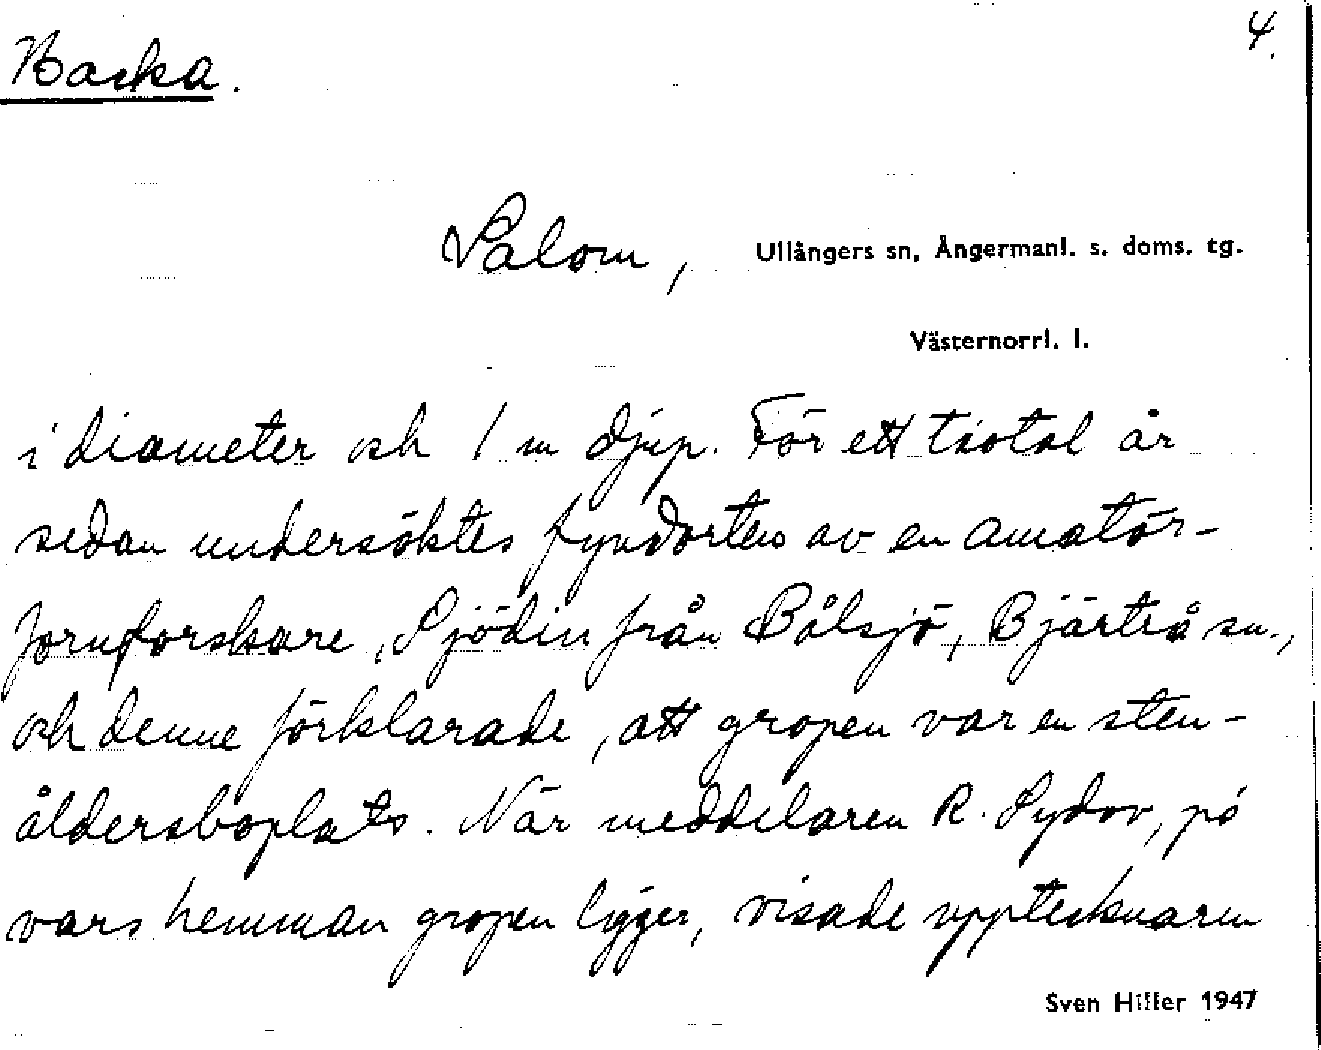 4.
Backa.
Salom, Ullångers sn, Ångermanl. s. doms. tg.
Västernorrl. l.
i diameter och 1 m djup. För ett tiotal år
sedan undersöktes fyndorten av en amatör-
fornforskare, Sjödin från Bålsjö, Bjärtrå sn.,
och denne förklarade, att gropen var en sten-
åldersboplats. När meddelaren R. Sydov, på
vars hemman gropen ligger, visade upptecknaren
Sven Hiller 1947